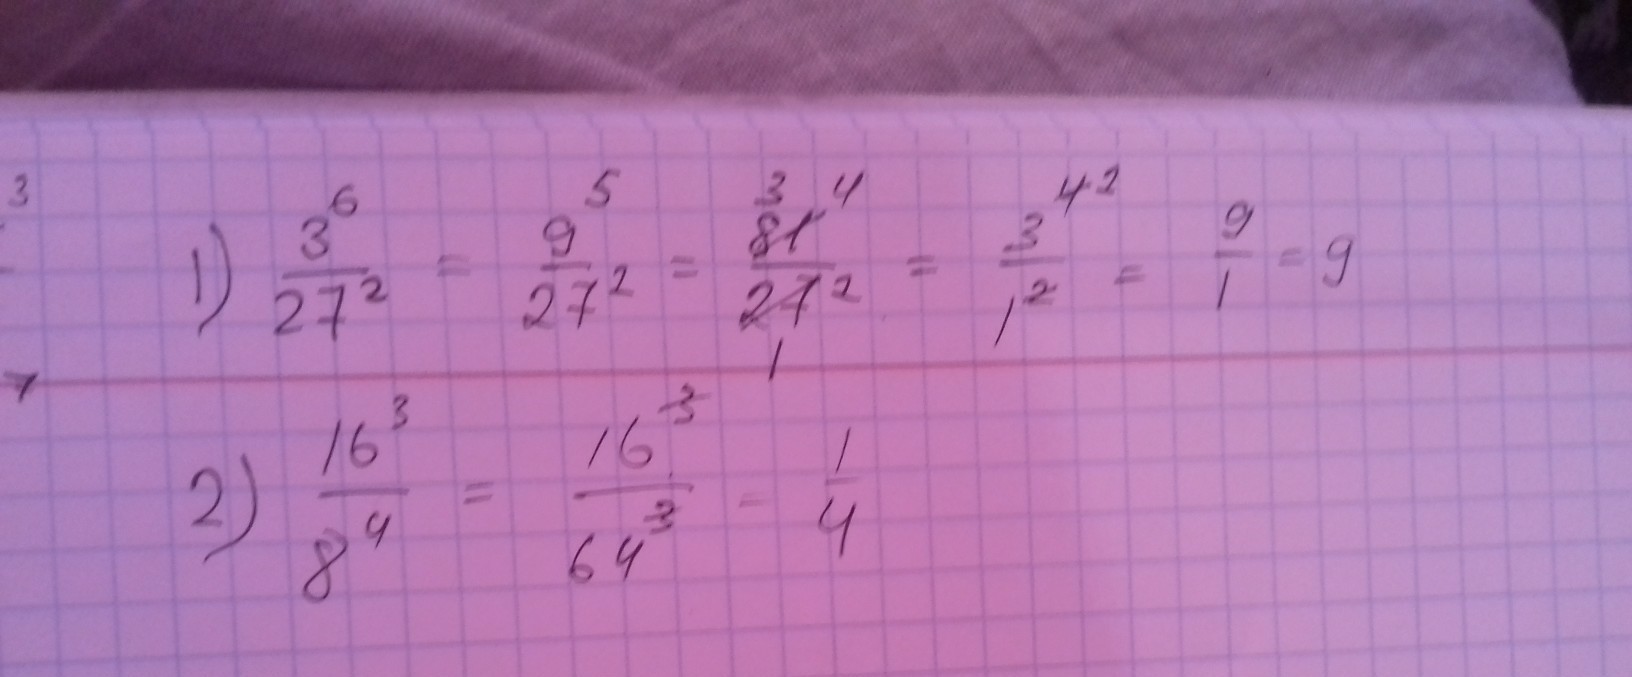 3
1) 3^6/27^2 = 9^5/27^2 = 81^4/27^2 3 1 = 3^4 2/1^2 = 9/1 = 9
7
2) 16^3/8^4 = 16^3/64^3 = 1/4